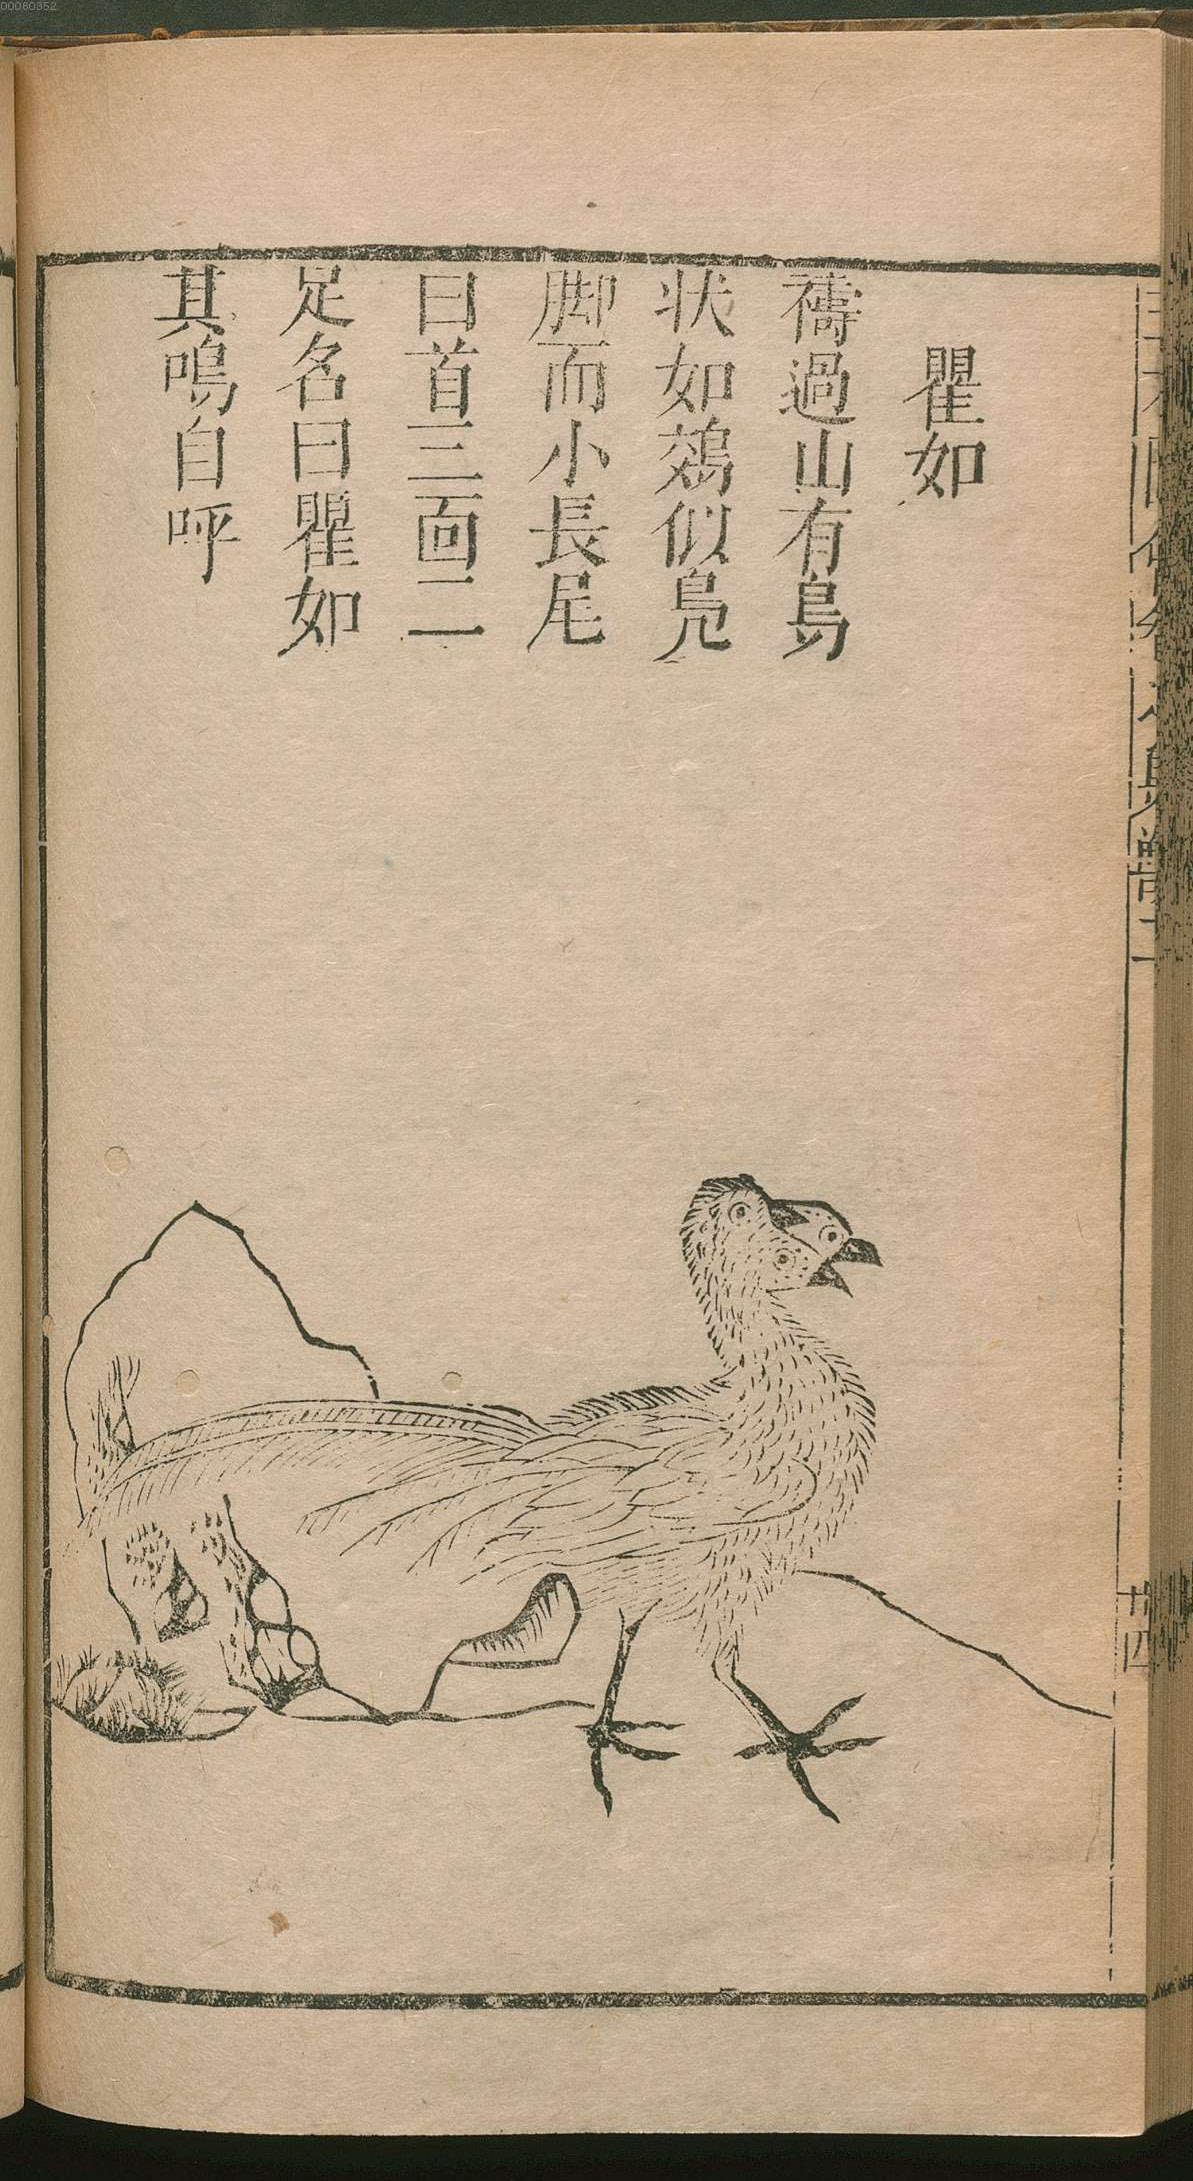 瞿如
禱過山有鳥
状如鵁似鳧
脚而小長尾
曰首三面二
足名曰瞿如
其鳴自呼
十四
00060352